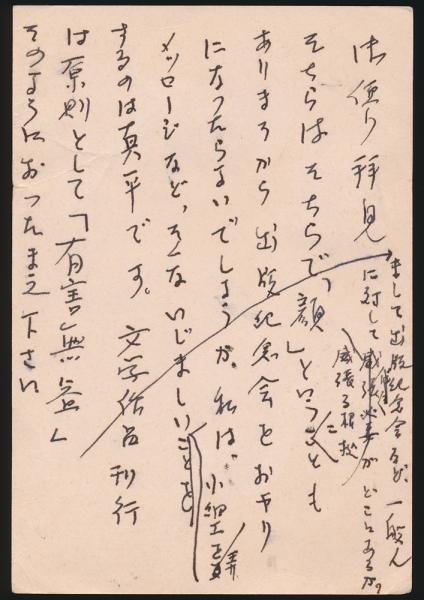 御便り拝見
そちらはそちらで「顔」ということも
ありまらから出版紀念会をおやり
になったらよいでしょうが、私は、小細工を弄
メッセージなど、そんないじましいことを
するのは真平です。文学作品刊行
は原則として「有害無益」
そのようにおつたえ下さい
まして出版紀念会など、一般人
に対して威張る がどこにあるか。
威張る根拠